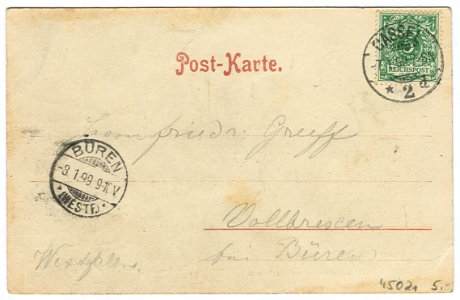 Post-Karte.
CASSEL
5
REICHSPOST
* 2 d
BÜREN
-8.1.99.9-1
V
*(WESTF.)*
Greeff
bei Büren
Westfalen
45021 5.-